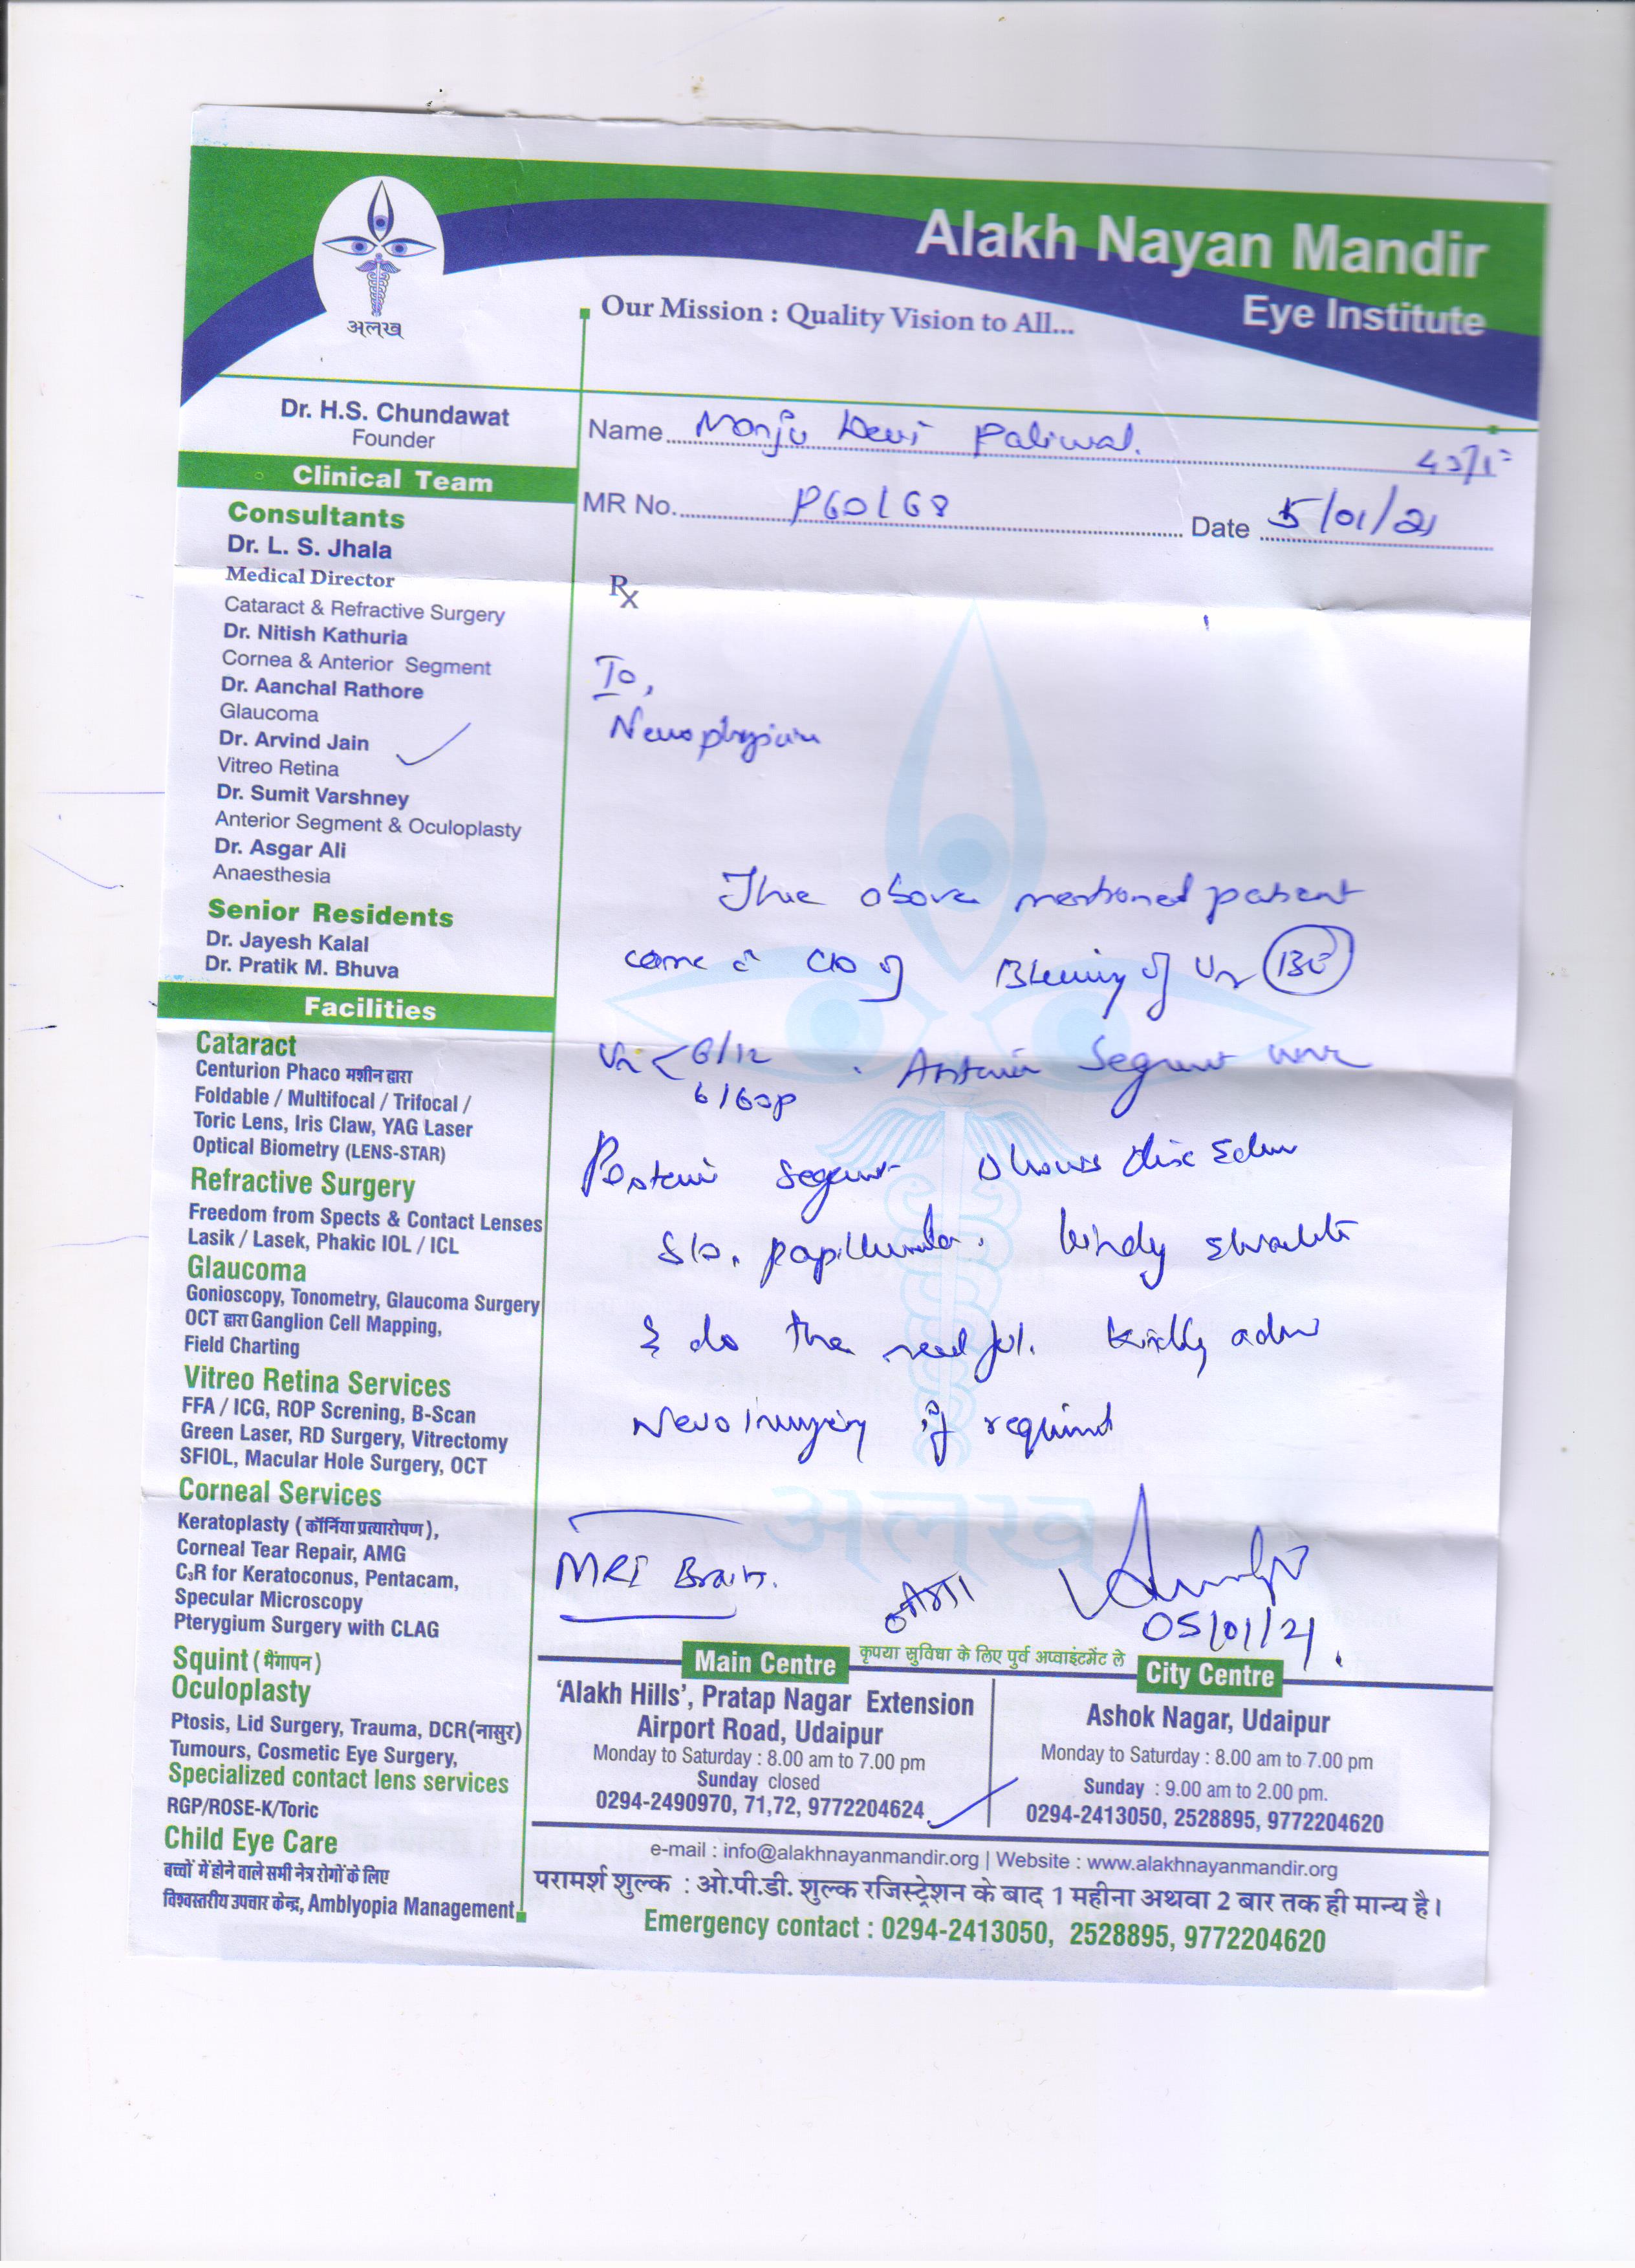 Alakh Nayan Mandir
Eye Institute
अलख
Our Mission : Quality Vision to All...
Dr. H.S. Chundawat
Founder
Name Manju Devi Paliwal.
MR No. P60168 Date 5/01/21
Clinical Team
Consultants
Dr. L. S. Jhala
Medical Director
Cataract & Refractive Surgery
Dr. Nitish Kathuria
Cornea & Anterior Segment
Dr. Aanchal Rathore
Glaucoma
Dr. Arvind Jain
Vitreo Retina
Dr. Sumit Varshney
Anterior Segment & Oculoplasty
Dr. Asgar Ali
Anaesthesia
Senior Residents
Dr. Jayesh Kalal
Dr. Pratik M. Bhuva
Facilities
Cataract
Centurion Phaco मशीन द्वारा
Foldable / Multifocal / Trifocal /
Toric Lens, Iris Claw, YAG Laser
Optical Biometry (LENS-STAR)
Refractive Surgery
Freedom from Spects & Contact Lenses
Lasik / Lasek, Phakic IOL / ICL
Glaucoma
Gonioscopy, Tonometry, Glaucoma Surgery
OCT द्वारा Ganglion Cell Mapping,
Field Charting
Vitreo Retina Services
FFA / ICG, ROP Screning, B-Scan
Green Laser, RD Surgery, Vitrectomy
SFIOL, Macular Hole Surgery, OCT
Corneal Services
Keratoplasty (कॉर्निया प्रत्यारोपण),
Corneal Tear Repair, AMG
C₃R for Keratoconus, Pentacam,
Specular Microscopy
Pterygium Surgery with CLAG
Squint (भैंगापन)
Oculoplasty
Ptosis, Lid Surgery, Trauma, DCR(नासुर)
Tumours, Cosmetic Eye Surgery,
Specialized contact lens services
RGP/ROSE-K/Toric
Child Eye Care
बच्चों में होने वाले सभी नेत्र रोगों के लिए
विश्वस्तरीय उपचार केन्द्र, Amblyopia Management
Rx
To,
Neurophysician
The above mentioned patient
came c̄ c/o of Blurring of Vn BE
Vn < 6/12 . Anterior Segment WNL
6/60p
Posterior segment shows disc edema
s/o. papilledema. kindly evaluate
& do the needful. Kindly advise
Neuroimaging if required
MRI Brain.
05/01/21.
कृपया सुविधा के लिए पुर्व अप्वाइंटमेंट ले
Main Centre
'Alakh Hills', Pratap Nagar Extension
Airport Road, Udaipur
Monday to Saturday : 8.00 am to 7.00 pm
Sunday closed
0294-2490970, 71,72, 9772204624
City Centre
Ashok Nagar, Udaipur
Monday to Saturday : 8.00 am to 7.00 pm
Sunday : 9.00 am to 2.00 pm.
0294-2413050, 2528895, 9772204620
e-mail : info@alakhnayanmandir.org | Website : www.alakhnayanmandir.org
परामर्श शुल्क : ओ.पी.डी. शुल्क रजिस्ट्रेशन के बाद 1 महीना अथवा 2 बार तक ही मान्य है।
Emergency contact : 0294-2413050, 2528895, 9772204620
अलख